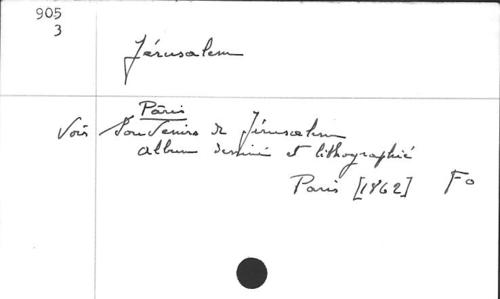 905
3
Jérusalem
Pâris
Voir Souvenirs de Jérusalem
album dessiné et lithographié
Paris [1862] Fo